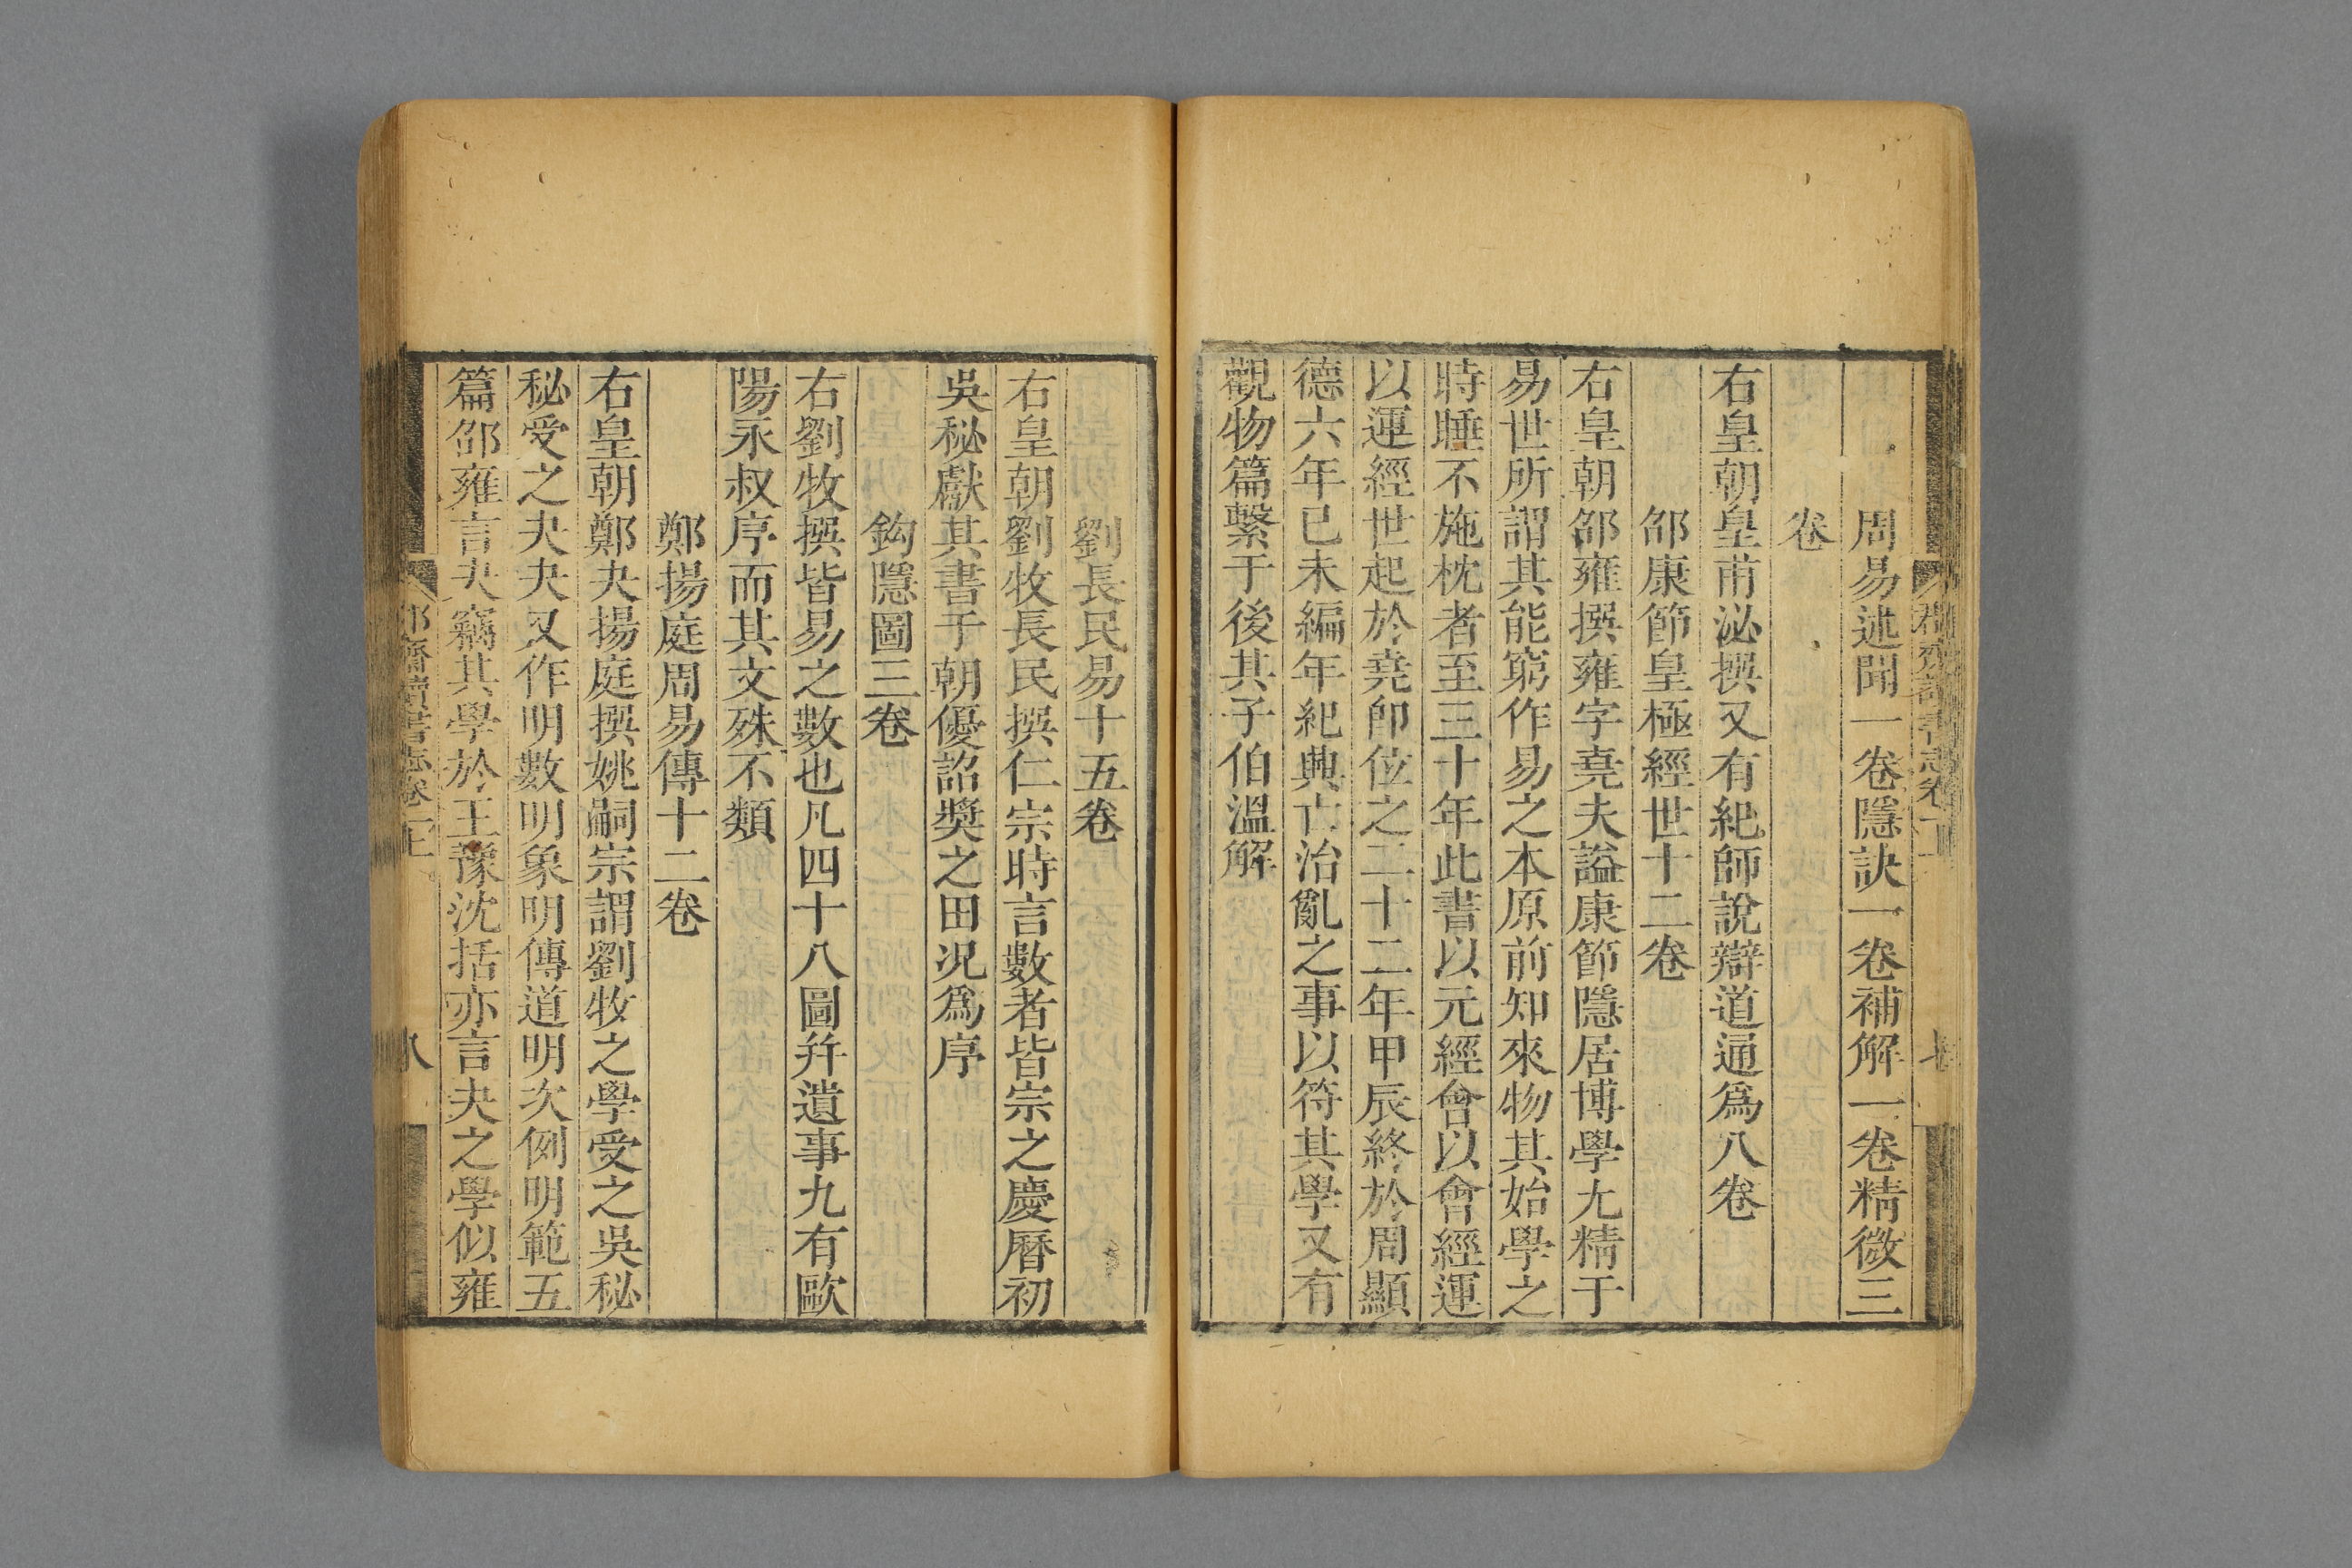 周易述聞一卷隱訣一卷補解一卷精微三
卷
右皇朝皇甫泌撰又有紀師說辯道通爲八卷
邵康節皇極經世十二卷
右皇朝邵雍撰雍字堯夫謚康節隱居博學尤精于
易世所謂其能窮作易之本原前知來物其始學之
時睡不施枕者至三十年此書以元經會以會經運
以運經世起於堯卽位之二十二年甲辰終於周顯
德六年已未編年紀興亡治亂之事以符其學又有
觀物篇繫于後其子伯溫解
劉長民易十五卷
右皇朝劉牧長民撰仁宗時言數者皆宗之慶曆初
吳秘獻其書于朝優詔獎之田况爲序
鈎隱圖三卷
右劉牧撰皆易之數也凡四十八圖幷遺事九有歐
陽永叔序而其文殊不類
鄭揚庭周易傳十二卷
右皇朝鄭夬揚庭撰姚嗣宗謂劉牧之學受之吳秘
秘受之夬夬又作明數明象明傳道明次例明範五
篇邵雍言夬竊其學於王豫沈括亦言夬之學似雍
郡齋讀書志卷一上
八